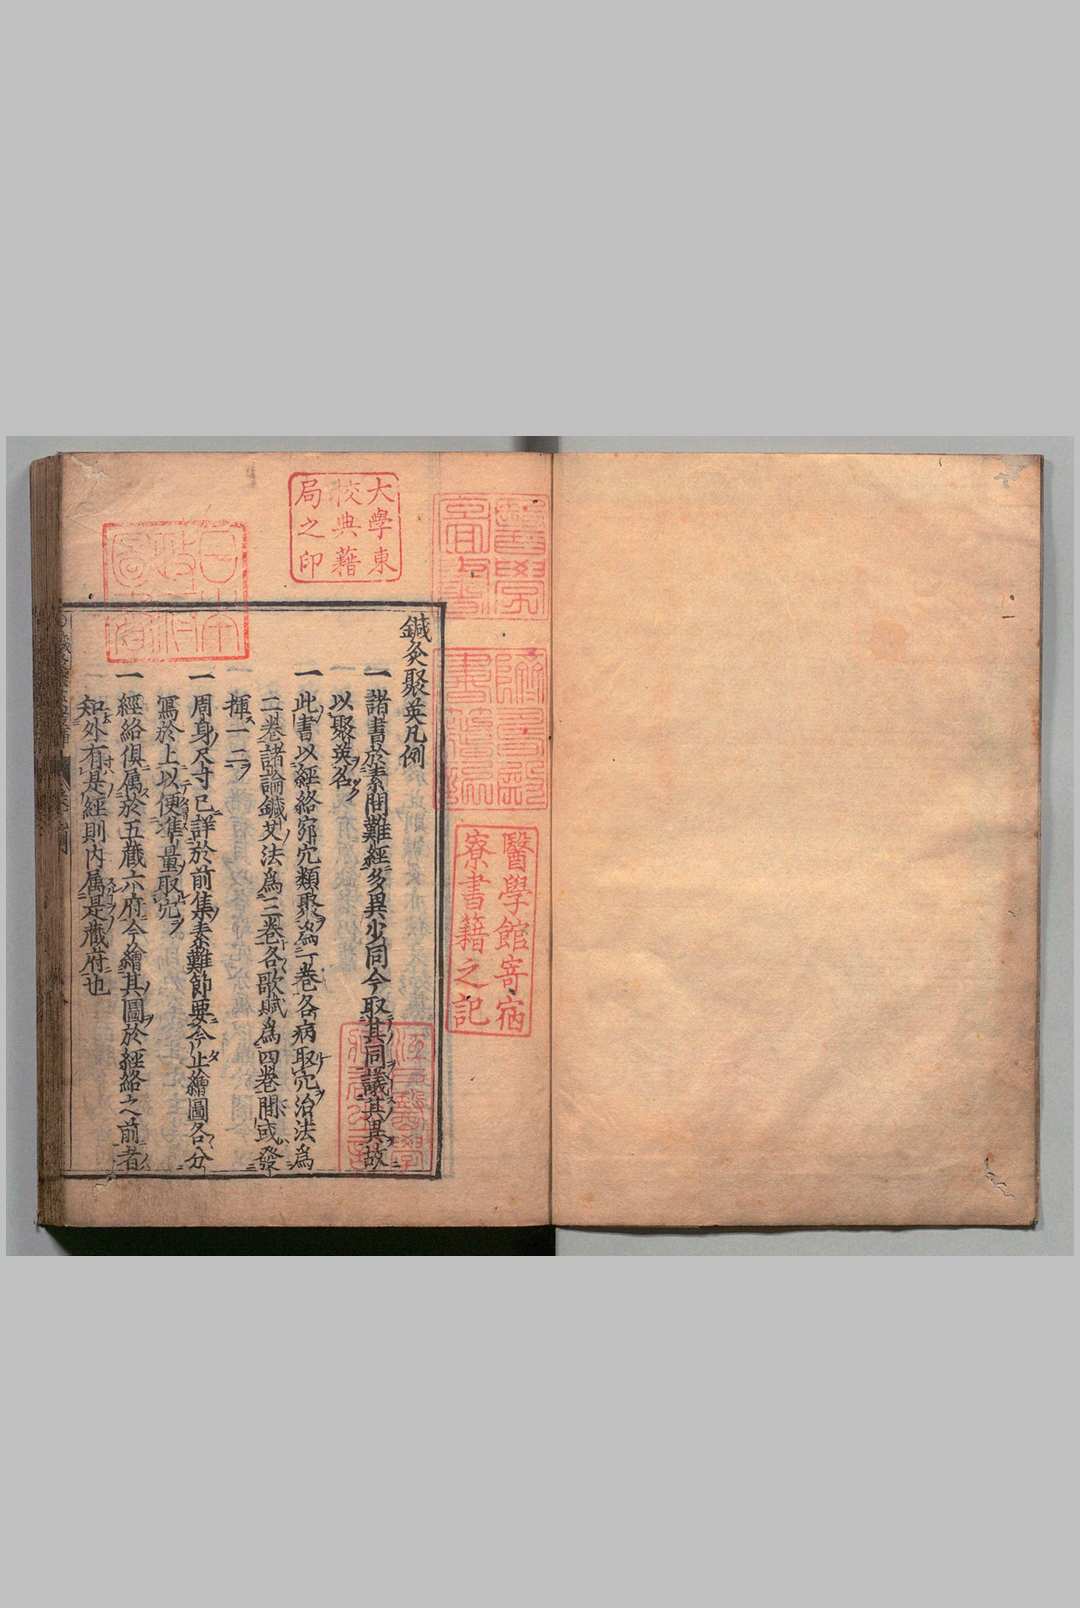 鍼灸聚英凡例
一諸書於素問難經多異少同今取其同議其異故
以聚英名
一此書以經絡窌穴類聚爲一卷各病取穴治法爲
二卷諸論鍼艾法爲三卷各歌賦爲四卷間或發
揮一二
一周身尺寸已詳於前集素難節要今止繪圖各分
寫於上以便準量取穴
一經絡俱属於五藏六府今繪其圖於經絡之前者
知外有是經則内属是藏府也
大學東
校典藉
局之印
醫學館寄宿
寮書籍之記
日本
政府
圖書
醫學